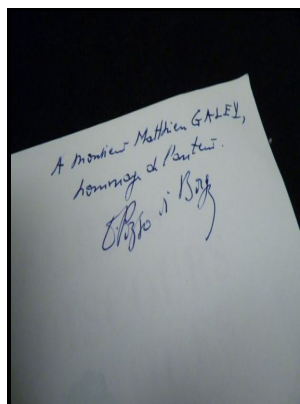 A Monsieur Matthieu GALEY,
hommage de l'auteur.
Pozzo di Borgo